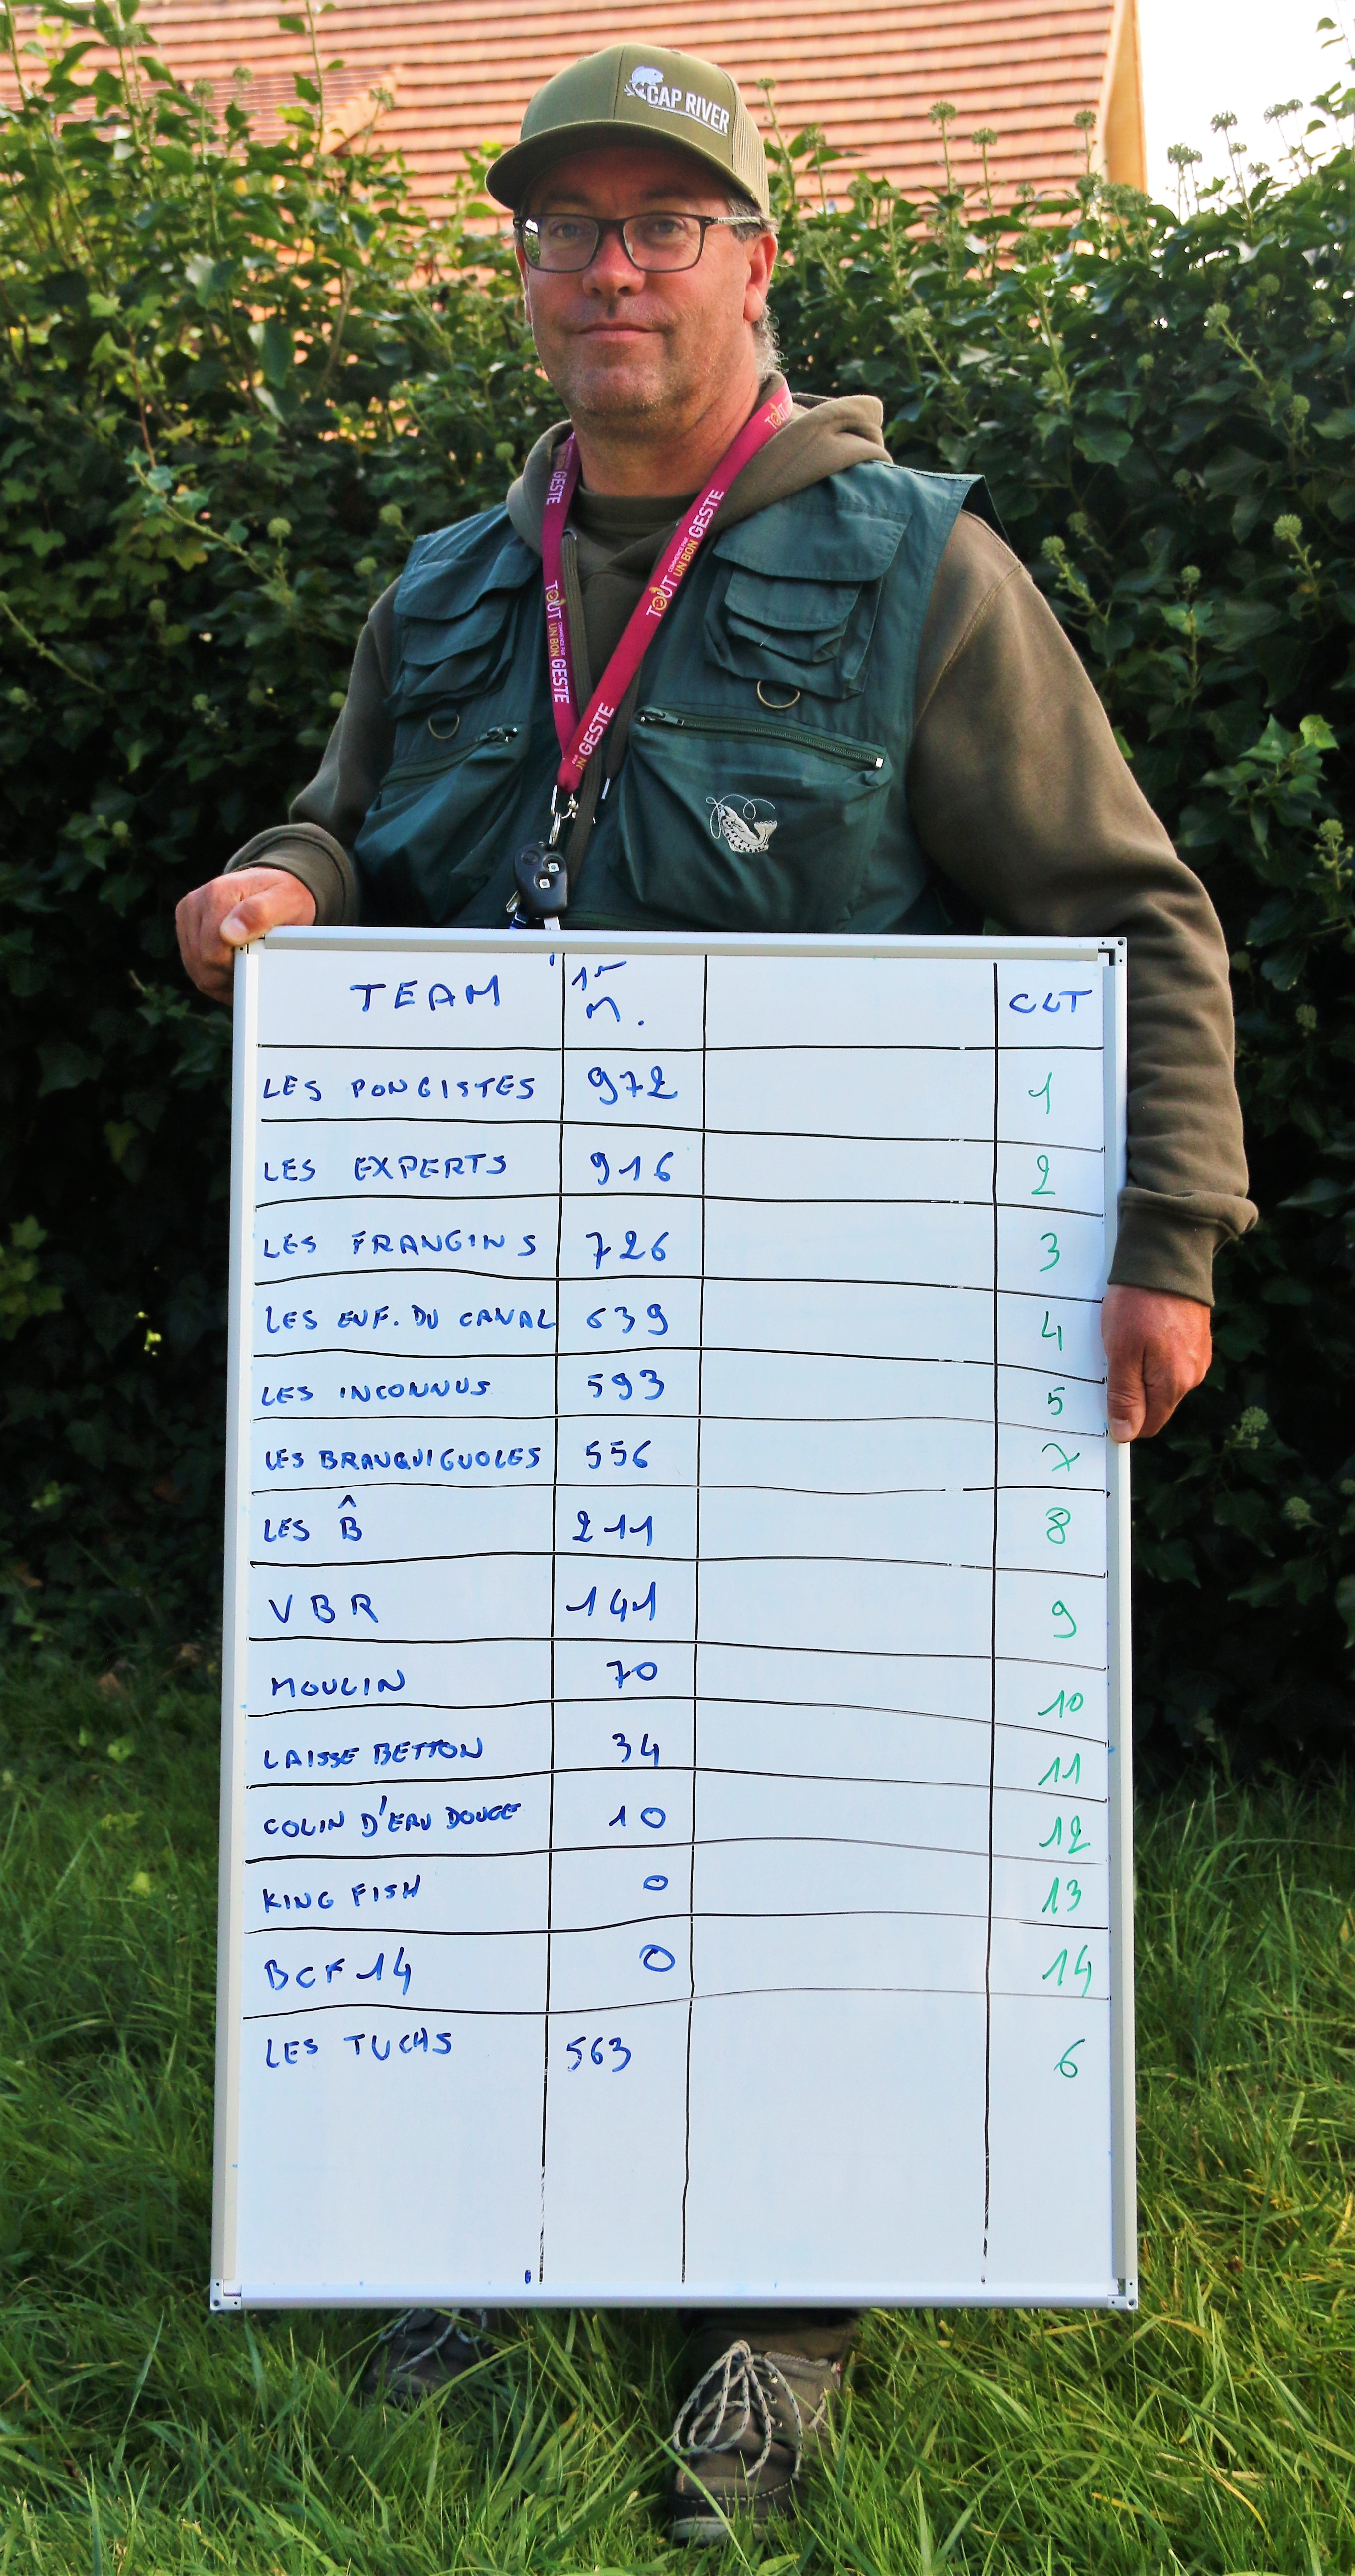 CAP RIVER
TOUT
GESTE
TOUT COMMENCE PAR UN BON GESTE
TOUT COMMENCE PAR UN BON GESTE
PAR
ON GESTE
TEAM 1er M. CLT
LES PONGISTES 972 1
LES EXPERTS 916 2
LES FRANGINS 726 3
LES ENF. DU CANAL 639 4
LES INCONNUS 593 5
LES BRANQUIGNOLES 556 7
LES B̂ 211 8
VBR 141 9
MOULIN 70 10
LAISSE BETTON 34 11
COLIN D'EAU DOUCE 10 12
KING FISH 0 13
BCF 14 0 14
LES TUCHS 563 6